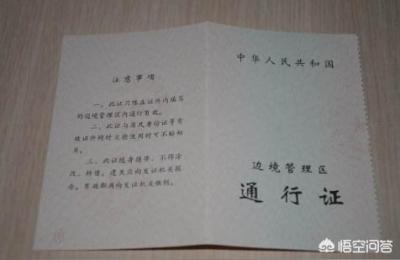 注意事项
一、此证只限在证件内填写
的边境管理区内通行有效。
二、此证与居民身份证等有
效证件同时交验使用时可不贴相
片。
三、此证随身携带，不得涂
改、转借。遗失应向发证机关报
告。有效期满向发证机关缴销。
中华人民共和国
边境管理区
通行证
悟空问答